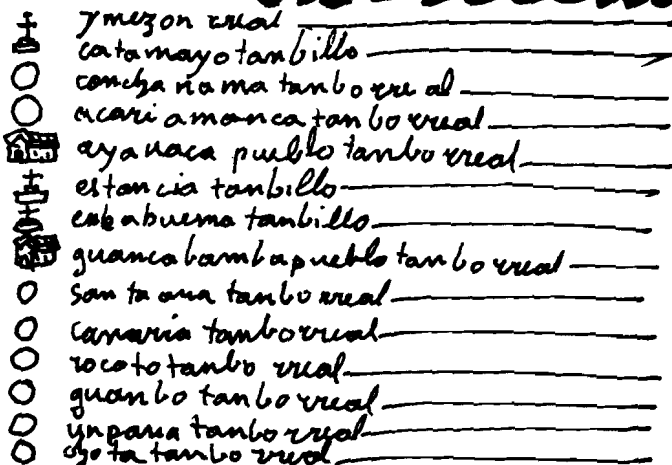 y mezon rreal
catamayo tanbillo
concha nama tanbo rreal
acari amanca tanbo rreal
ayauaca pueblo tanbo rreal
estancia tanbillo
cababuema tanbillo
guancabamba pueblo tanbo rreal
santa ana tanbo rreal
canaria tanbo rreal
rocoto tanbo rreal
guanbo tanbo rreal
ynpaua tanbo rreal
chota tanbo rreal